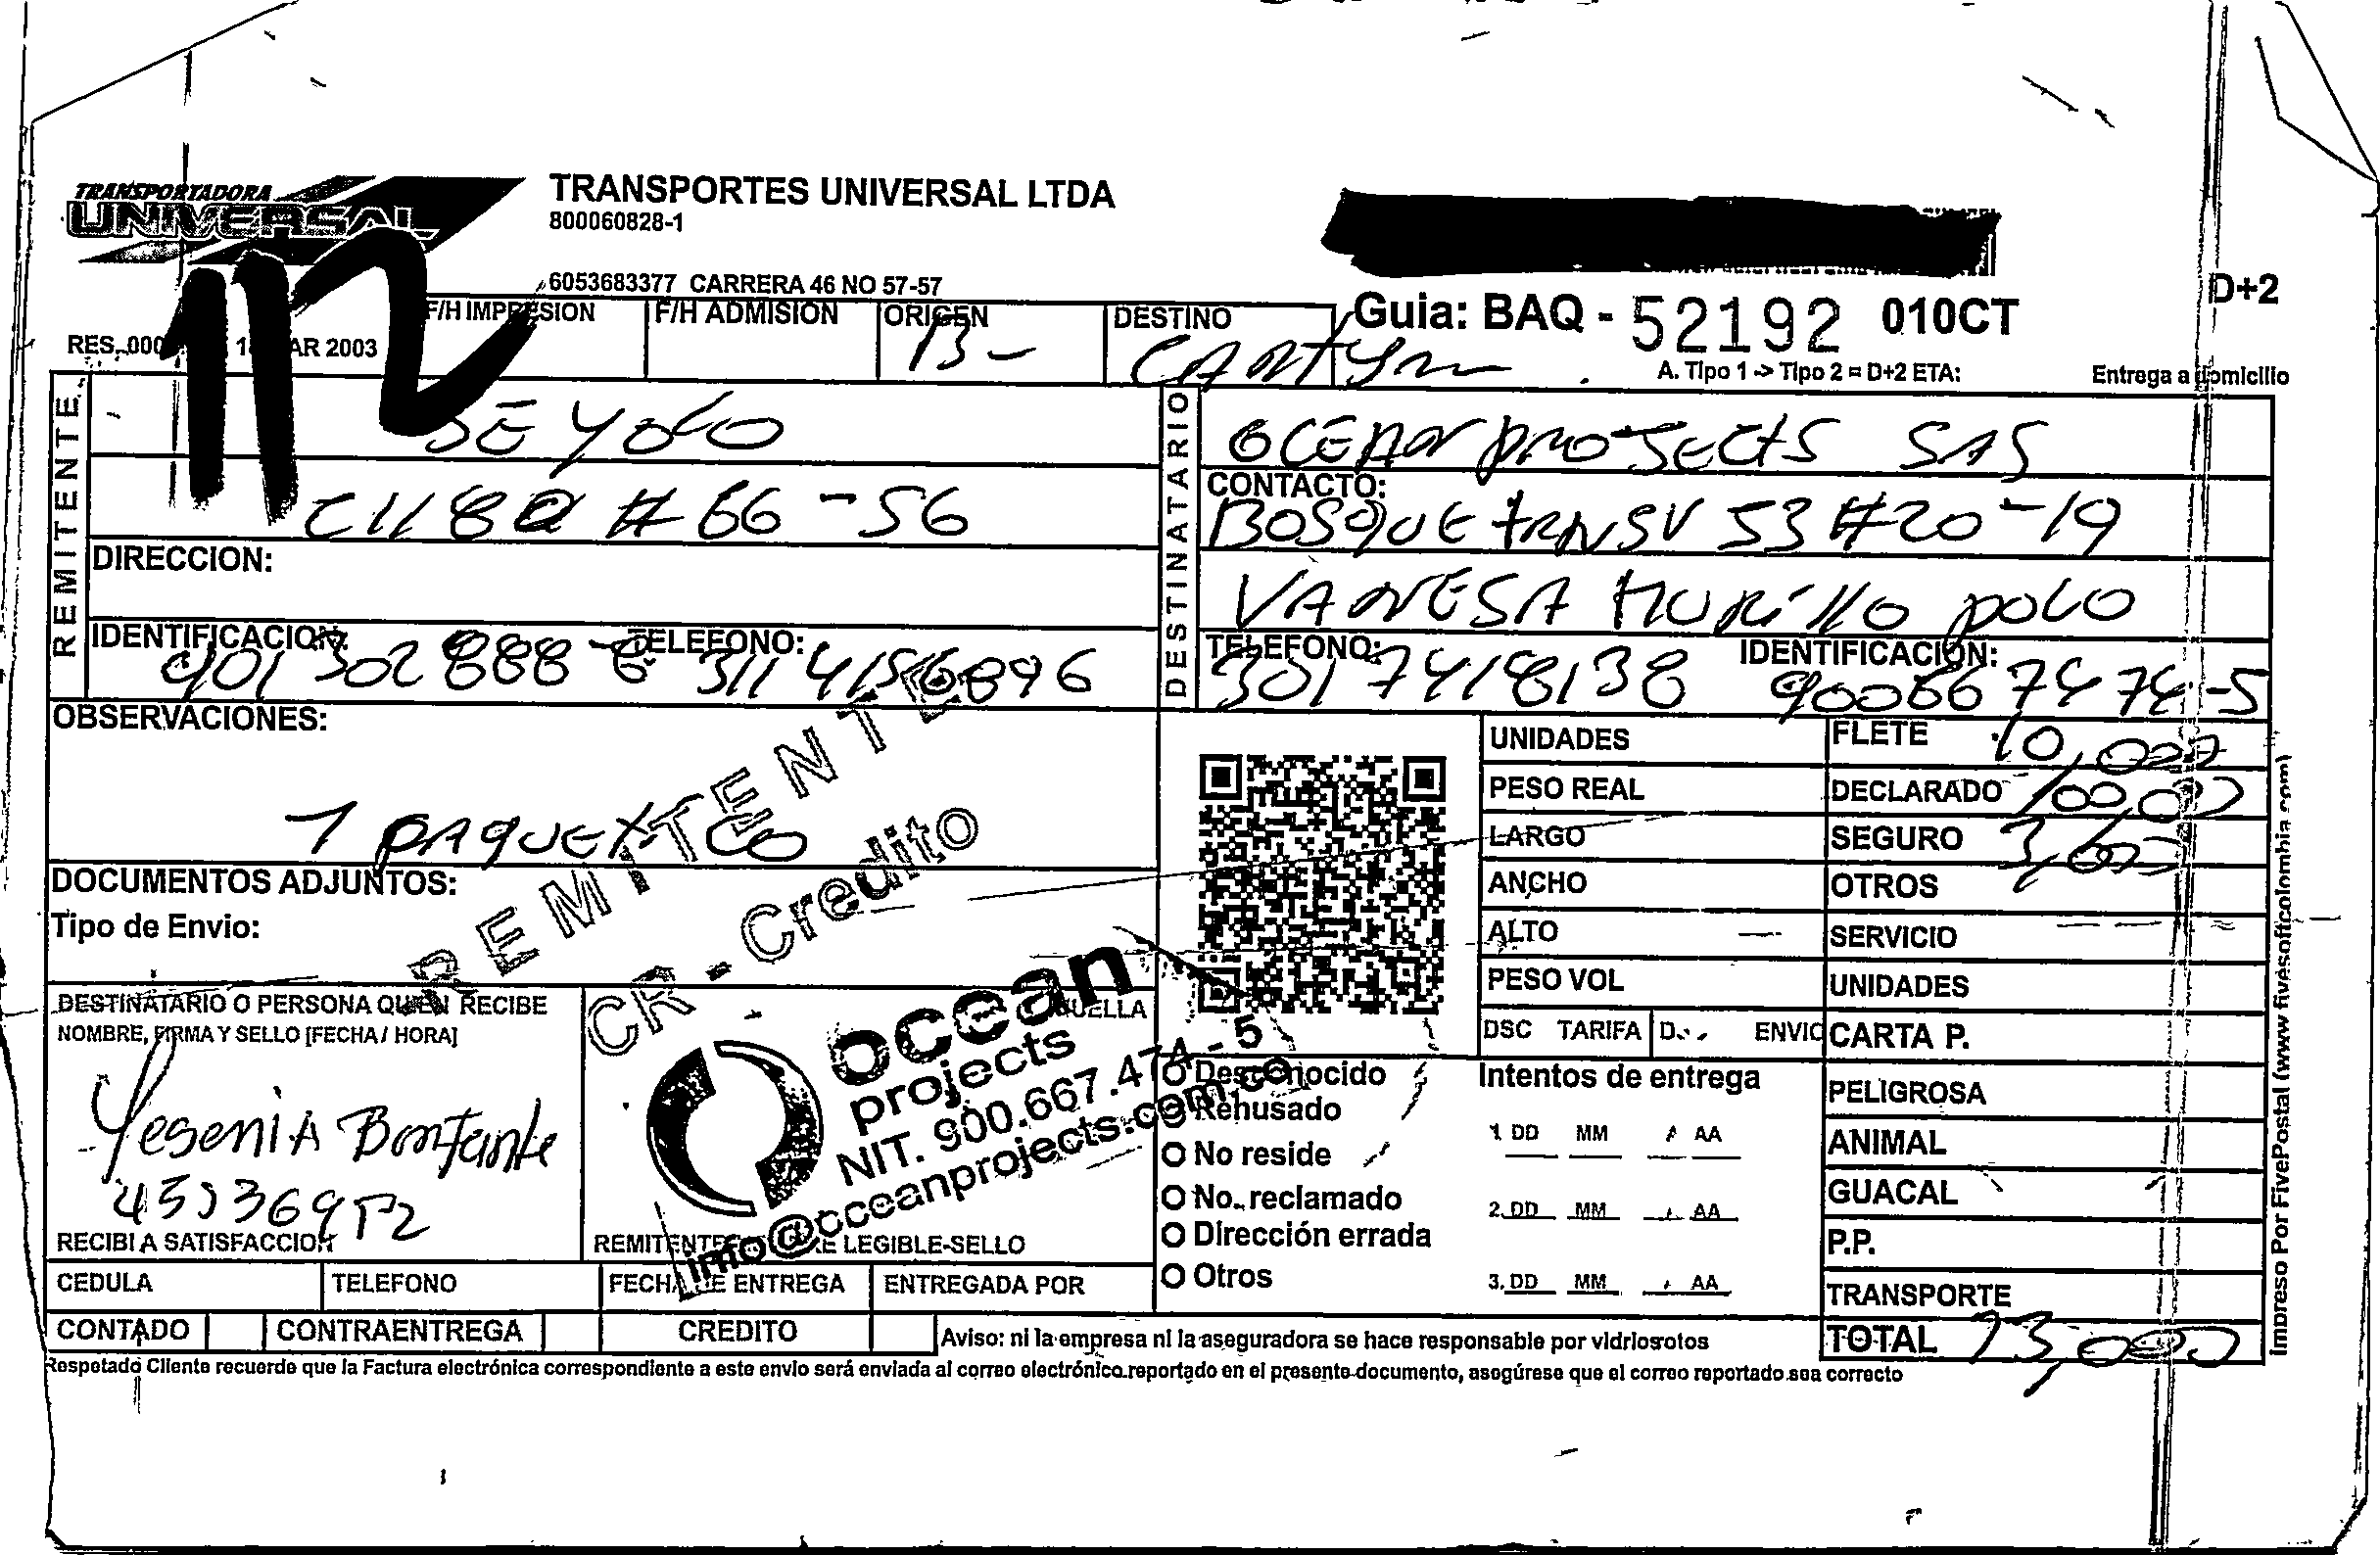 TRANSPORTADORA
UNIVERSAL
TRANSPORTES UNIVERSAL LTDA
800060828-1
6053683377 CARRERA 46 NO 57-57
D+2
Guia: BAQ - 52192 010CT
F/H IMPRESION F/H ADMISION ORIGEN DESTINO
B-
RES. 000 AR 2003
A. Tipo 1 -> Tipo 2 = D+2 ETA:
Entrega a domicilio
REMITENTE
# 66-56
DIRECCION:
IDENTIFICACION: TELEFONO:
901302888-8 311 4156896
DESTINATARIO
OCEAN PROJECTS SAS
CONTACTO:
BOSQUE TRANSV 53 #20-19
VANESA MURILLO POLO
TELEFONO: IDENTIFICACION:
301 7418138 900667474-5
OBSERVACIONES:
1 PAQUETICO
REMITENTE
CR - Credito
DOCUMENTOS ADJUNTOS:
Tipo de Envio:
UNIDADES
PESO REAL
LARGO
ANCHO
ALTO
PESO VOL
DSC TARIFA ENVIO
FLETE 10,000
DECLARADO
SEGURO
OTROS
SERVICIO
UNIDADES
CARTA P.
PELIGROSA
ANIMAL
GUACAL
P.P.
TRANSPORTE
TOTAL 13,000
DESTINATARIO O PERSONA QUIEN RECIBE
NOMBRE, FIRMA Y SELLO [FECHA / HORA]
HUELLA
Yesenia Bonfante
RECIBI A SATISFACCION
ocean
projects
NIT. 900.667.474-5
info@oceanprojects.com.co
REMITENTE LEGIBLE-SELLO
Desconocido
Rehusado
No reside
No. reclamado
Dirección errada
Otros
Intentos de entrega
1. DD MM AA
2. DD MM AA
3. DD MM AA
CEDULA TELEFONO FECHA DE ENTREGA ENTREGADA POR
CONTADO CONTRAENTREGA CREDITO
Aviso: ni la empresa ni la aseguradora se hace responsable por vidrios rotos
Respetado Cliente recuerde que la Factura electrónica correspondiente a este envio será enviada al correo electrónico reportado en el presente documento, asegúrese que el correo reportado sea correcto
Impreso Por FivePostal (www fivesoftcolombia com)